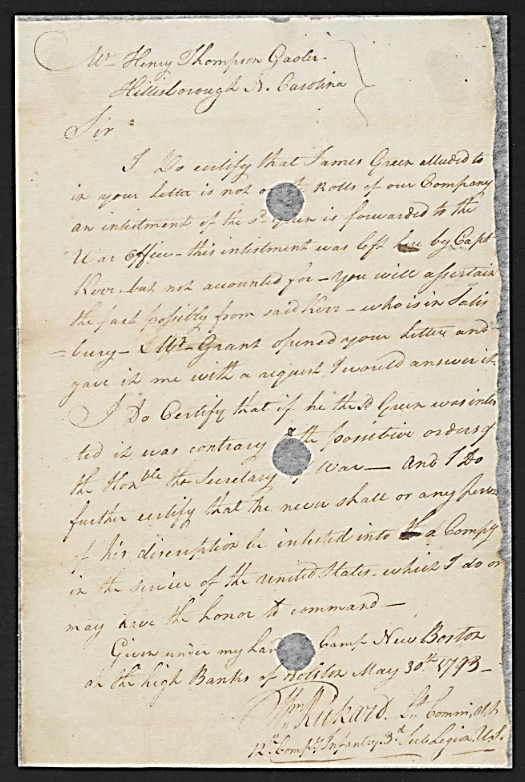 Mr Henry Thompson Gaoler
Hillsborough N. Carolina
Sir
I Do certify that James Green alluded to
in your Letter is not on the Rolls of our Company
an inlistment of the sd Green is forwarded to the
War Office - this inlistment was left by Capt
Kerr but not accounted for - you will assertain
the fact possibly from said Kerr - who is in Salis
= bury - Mr Grant opened your Letter and
gave it me with a request I would answer it
I Do Certify that if he the sd Green was inlis
ted it was contrary to the possitive orders of
the Honble the Secretary of War — and I Do
further certify that he never shall or any person
of his discription be inlested into a Compy
in the service of the united States which I do or
may have the honor to command —
Given under my hand Camp New Boston
on the high Banks of Holston May 30th 1793 -
Wm Rickard. Lt Comm
12th Compy Infantry 3d Sub Legion U.S.